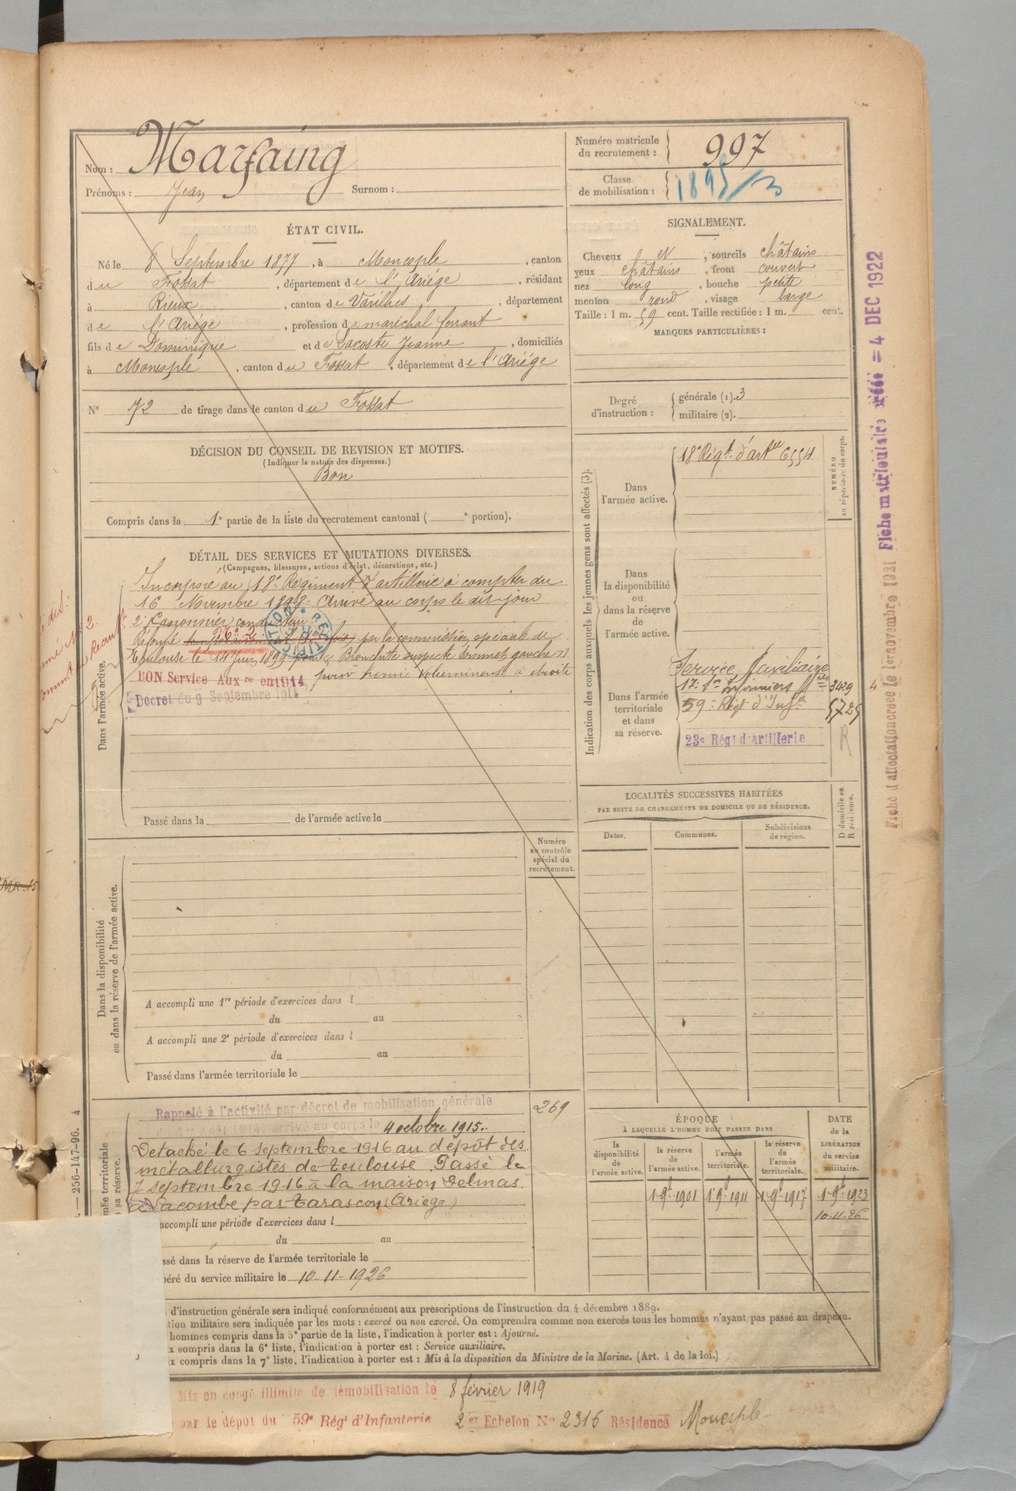 Nom : Marfaing
Prénoms : Jean Surnom :
Numéro matricule du recrutement : 997
Classe de mobilisation : 1895/3
ÉTAT CIVIL.
Né le 8 Septembre 1877, à Monesple, canton
du Fossat, département de l'Ariège, résidant
à Rieux, canton de Varilhes, département
de l'Ariège, profession de maréchal ferrant
fils de Dominique et de Lacoste Jeanne, domiciliés
à Monesple, canton du Fossat, département de l'Ariège
N° 72 de tirage dans le canton du Fossat
SIGNALEMENT.
Cheveux et, sourcils châtains
yeux châtains, front couvert
nez long, bouche petite
menton rond, visage large
Taille : 1 m. 59 cent. Taille rectifiée : 1 m. cent.
MARQUES PARTICULIÈRES :
Degré d'instruction : générale (1). 3
militaire (2).
DÉCISION DU CONSEIL DE REVISION ET MOTIFS.
(Indiquer la nature des dispenses.)
Bon
Compris dans la 1e partie de la liste du recrutement cantonal ( e portion).
DÉTAIL DES SERVICES ET MUTATIONS DIVERSES.
(Campagnes, blessures, actions d'éclat, décorations, etc.)
Incorporé au 18e Régiment d'artillerie à compter du
16 Novembre 1898. Arrivé au corps le dit jour
2e Canonnier conducteur.
Réformé par la commission spéciale de
Toulouse le 1899
pour hernie volumineuse à droite
BON Service Aux re en 1914
Décret du 9 Septembre 1914
Dans l'armée active.
Passé dans la de l'armée active le
Indication des corps auxquels les jeunes gens sont affectés (3).
NUMÉRO au répertoire du corps.
Dans l'armée active.
18e Régt d'artie 6554
Dans la disponibilité ou dans la réserve de l'armée active.
Dans l'armée territoriale et dans sa réserve.
Service Auxiliaire
17e Son Infirmiers Mres 3429
59e Régt d'Infie 5725
23e Régt d'Artillerie
R
LOCALITÉS SUCCESSIVES HABITÉES
PAR SUITE DE CHANGEMENTS DE DOMICILE OU DE RÉSIDENCE.
Dates. Communes. Subdivisions de région. D domicile ou R résidence.
Numéro au contrôle spécial du recrutement.
Dans la disponibilité ou dans la réserve de l'armée active.
A accompli une 1re période d'exercices dans l
du au
A accompli une 2e période d'exercices dans l
du au
Passé dans l'armée territoriale le
269
Rappelé à l'activité par décret de mobilisation générale
arrivé au corps le 4 octobre 1915.
Détaché le 6 septembre 1916 au dépôt des
métallurgistes de Toulouse. Passé le
7 septembre 1916 à la maison Delmas
à Lacombe par Tarascon (Ariège)
accompli une période d'exercices dans l
du au
ssé dans la réserve de l'armée territoriale le
béré du service militaire le 10-11-1926
ÉPOQUE
À LAQUELLE L'HOMME DOIT PASSER DANS
la disponibilité de l'armée active. la réserve de l'armée active. l'armée territoriale. la réserve de l'armée territoriale.
DATE de la LIBÉRATION du service militaire.
1-9b-1901 1-9b-1911 1-9b-1917 1-9b-1923
10-11-26
d'instruction générale sera indiqué conformément aux prescriptions de l'instruction du 4 décembre 1889.
tion militaire sera indiquée par les mots : exercé ou non exercé. On comprendra comme non exercés tous les hommes n'ayant pas passé au drapeau.
hommes compris dans la 5e partie de la liste, l'indication à porter est : Ajourné.
x compris dans la 6e liste, l'indication à porter est : Service auxiliaire.
x compris dans la 7e liste, l'indication à porter est : Mis à la disposition du Ministre de la Marine. (Art. 4 de la loi.)
Mis en congé illimité de démobilisation le 8 février 1919
par le dépôt du 59e Régt d'Infanterie 2e Echelon N° 2315 Résidence Monesple
Fiche d'affectation créée le 1er novembre 1921 Fiche matriculaire créée = 4 DEC 1922
— 256-147-96. 4